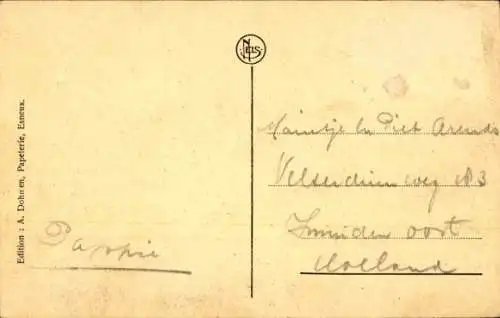 Edition : A. Dohmen, Papeterie, Esneux.
Pappie
Maintje en Piet Arends
Velserduinweg 183
IJmuiden oost
Holland